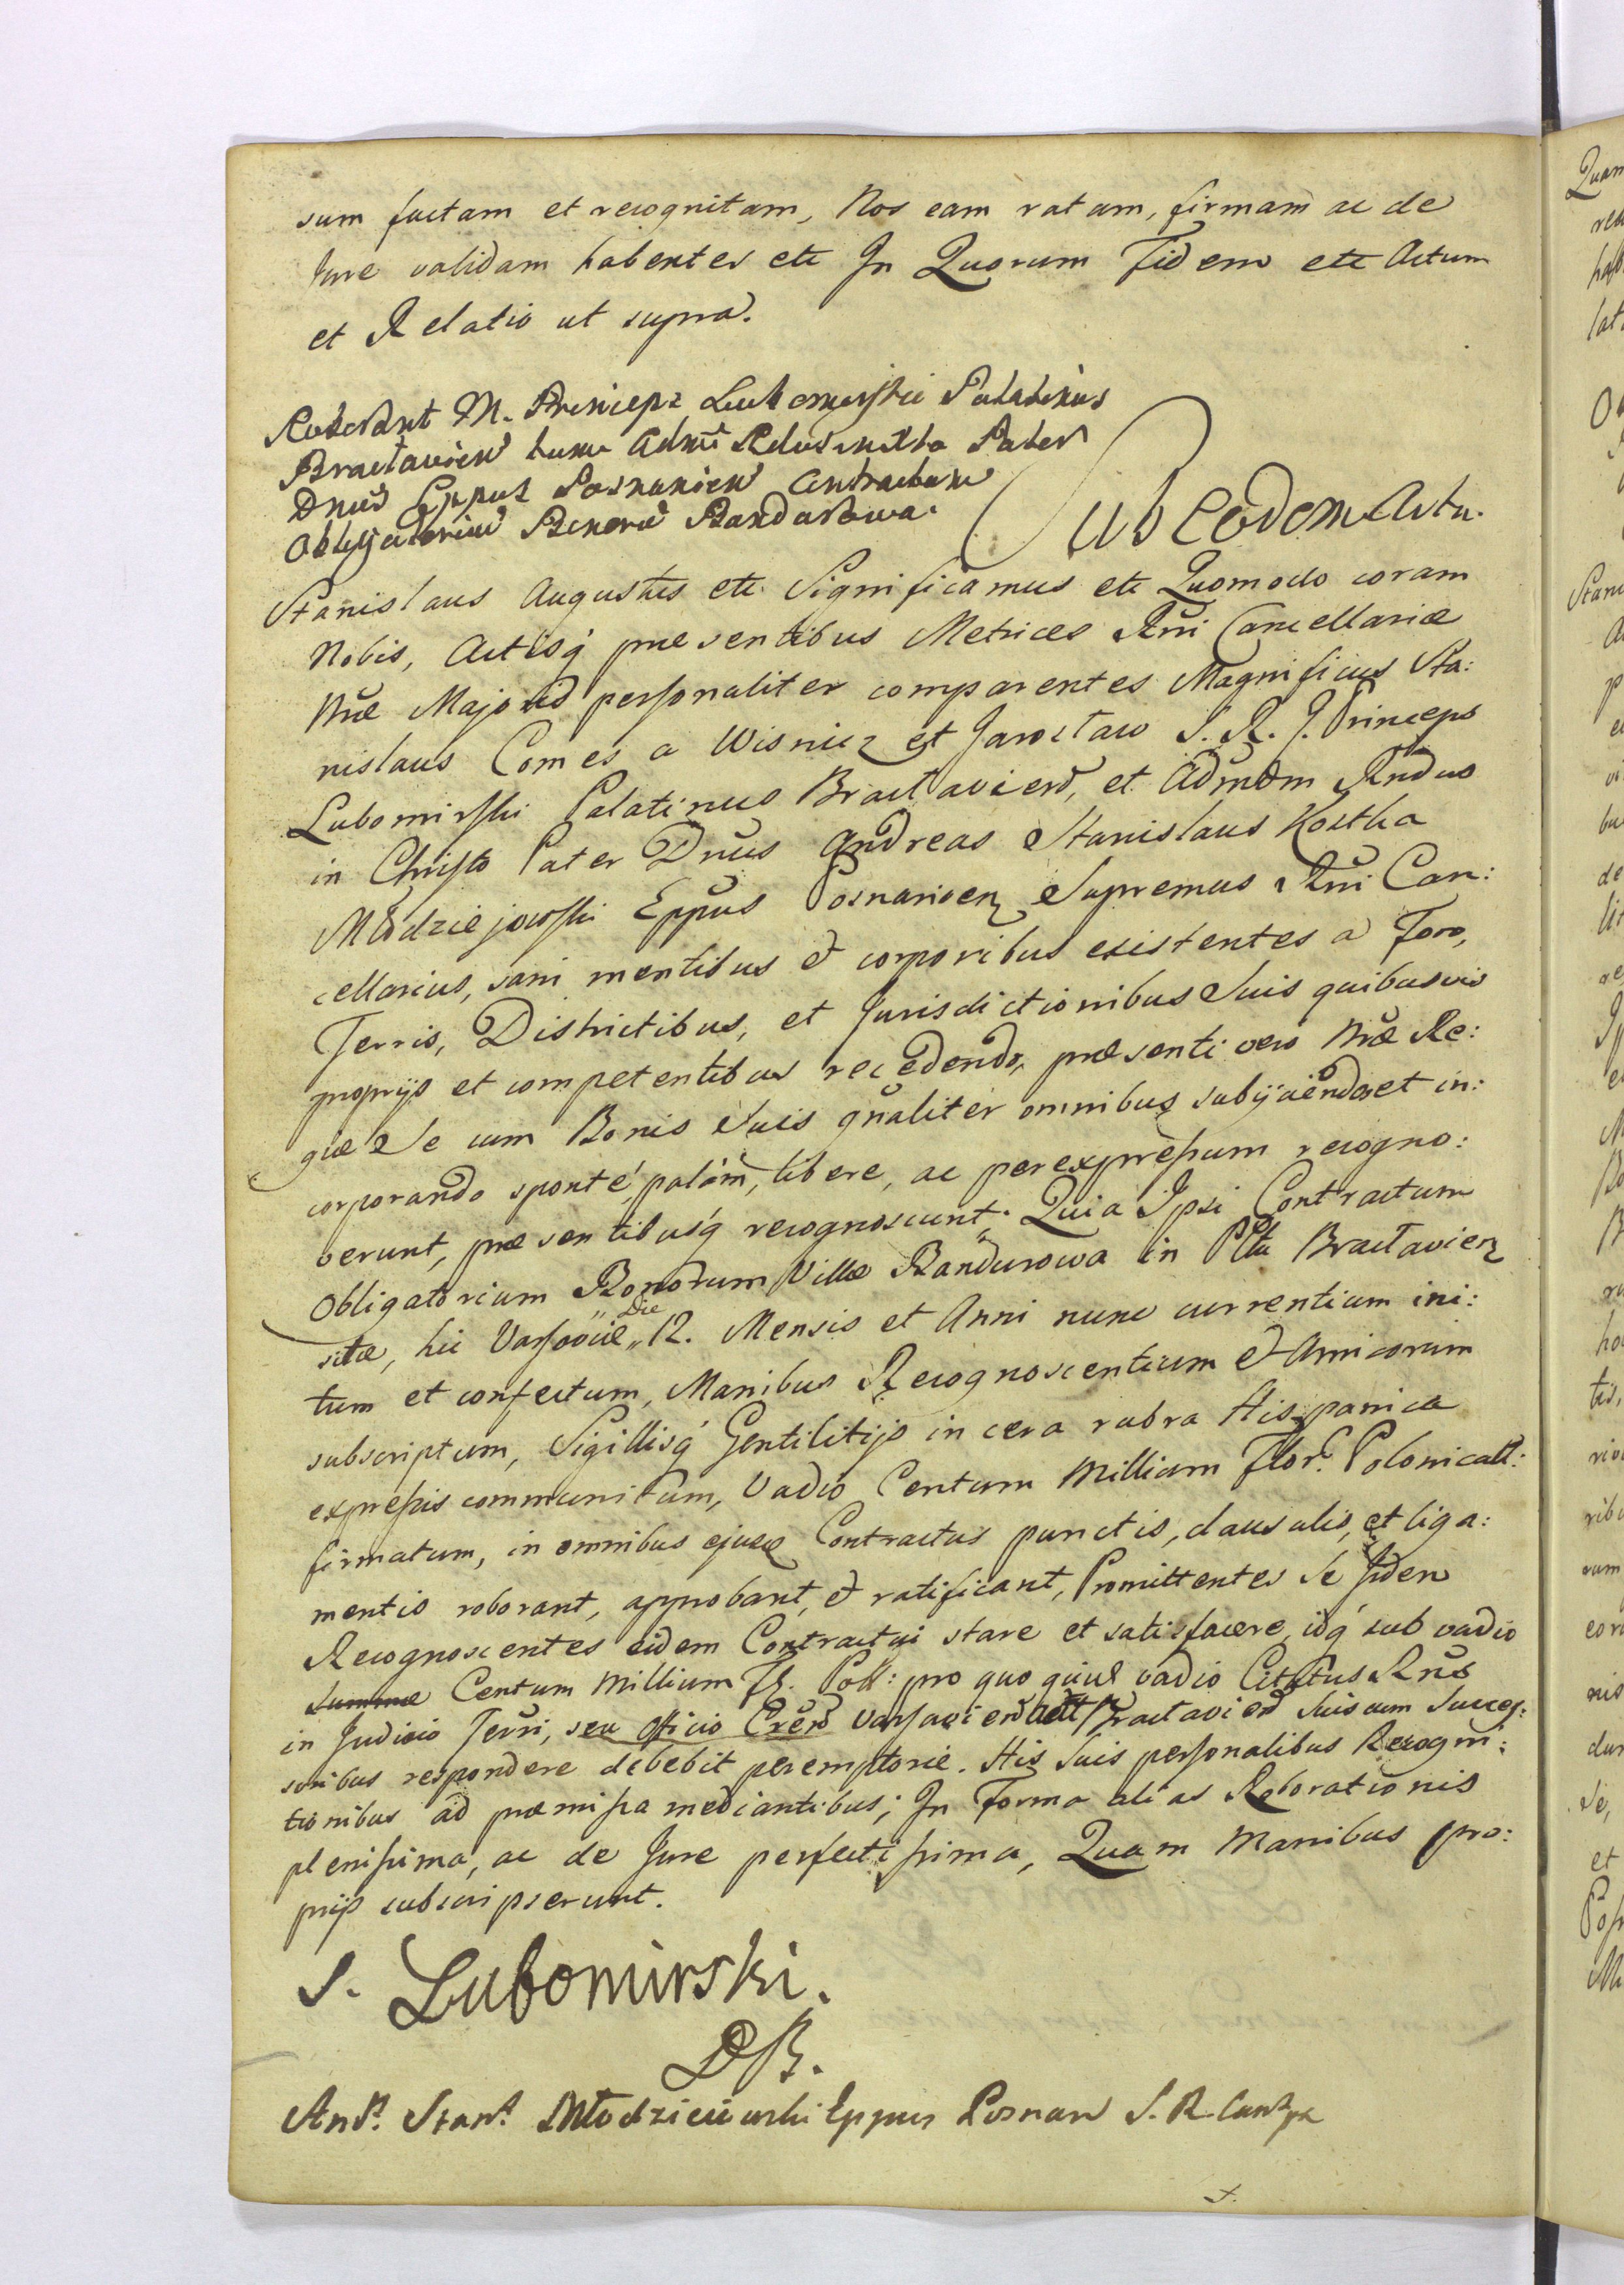 sum factam et recognitam, Nos eam ratam, firmam ac de
Jure validam habentes etc In Quorum Fidem etc Actum
et Relatio ut supra.
Roborant M. Princeps Lubomirski Palatinus
Braclavien cum Admo Rdus in Xto Pater
Dnus Eppus Posnanien Contractum
Obligatorium Bonorum Bandurowa.
Sub eodem Actu.
Stanislaus Augustus etc. Significamus etc Quomodo coram
Nobis, Actisq́ præsentibus Metrices Rni Cancellariæ
Nræ Majoris personaliter comparentes Magnificus Sta:
nislaus Comes a Wisnicz et Jaroslaw S. R. J. Princeps
Lubomirski Palatinus Braclavien, et Admdm Rndus
in Christo Pater Dnus Andreas Stanislaus Kostka
Młodziejowski Eppus Posnanien Supremus Rni Can:
cellarius, sani mentibus et corporibus existentes a Foro,
Terris, Districtibus, et Jurisdictionibus Suis quibusvis
proprijs et competentibus recedendo, præsenti vero Nræ Re:
giæ Se cum Bonis Suis gnaliter omnibus subijciendo et in:
corporando sponte, palam, libere, ac per expressum recogno:
verunt, præsentibusq́ recognoscunt; Quia Ipsi Contractum
Obligatorium Bonorum Villæ Bandurowa in Pltu Braclavien
sitæ, hic Varsaviæ „ Die „ 12. Mensis et Anni nunc currentium ini:
tum et confectum, Manibus Recognoscentium et Amicorum
subscriptum, Sigillisq́ Gentilitijs in cera rubra Hispanica
expressis communitum, Vadio Centum Millium Flor. Polonicall:
firmatum, in omnibus ejusq Contractus punctis, clausulis, et liga:
mentis roborant, approbant, et ratificant, Promittentes Se Jidem
Recognoscentes eidem Contractui stare et satisfacere, idq́ sub vadio
Summæ Centum Millium Fl. Poll: pro quo quidem vadio Citatus Rnus
in Judicio Terri, seu Officio Cren Varsavien Braclavien Suis cum Succes:
soribus respondere debebit peremptorie. His Suis personalibus Recogni:
tionibus ad præmissa mediantibus; In Forma alias Roborationis
plenissima, ac de Jure perfectissima, Quam Manibus pro:
prijs subscripserunt.
S. Lubomirski.
And. Stan. Młodzieiowski Eppus Posnan S. R. Canz